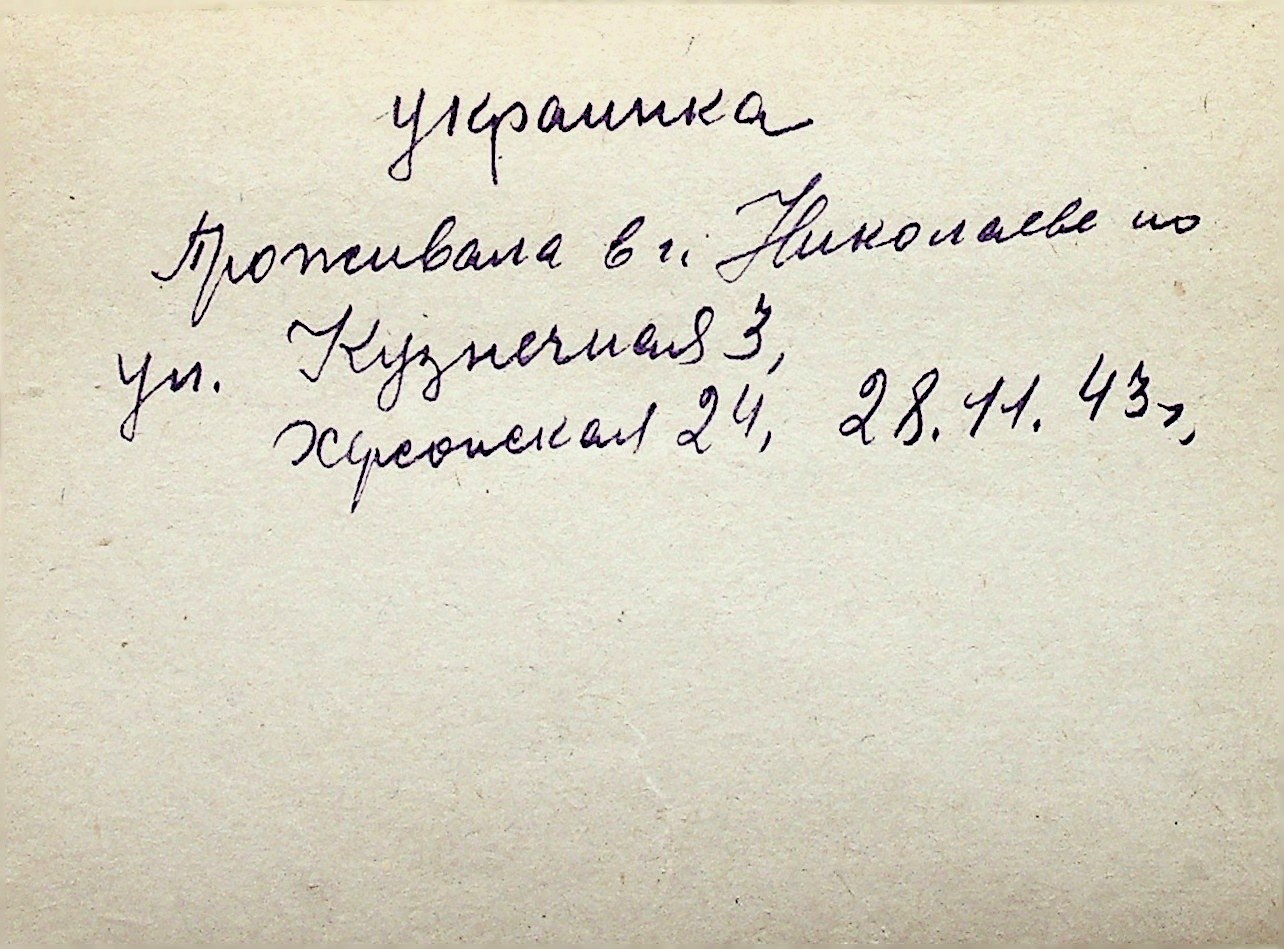 украинка
Проживала в г. Николаеве по
ул. Кузнечная 3,
Херсонская 24, 28.11.43г,